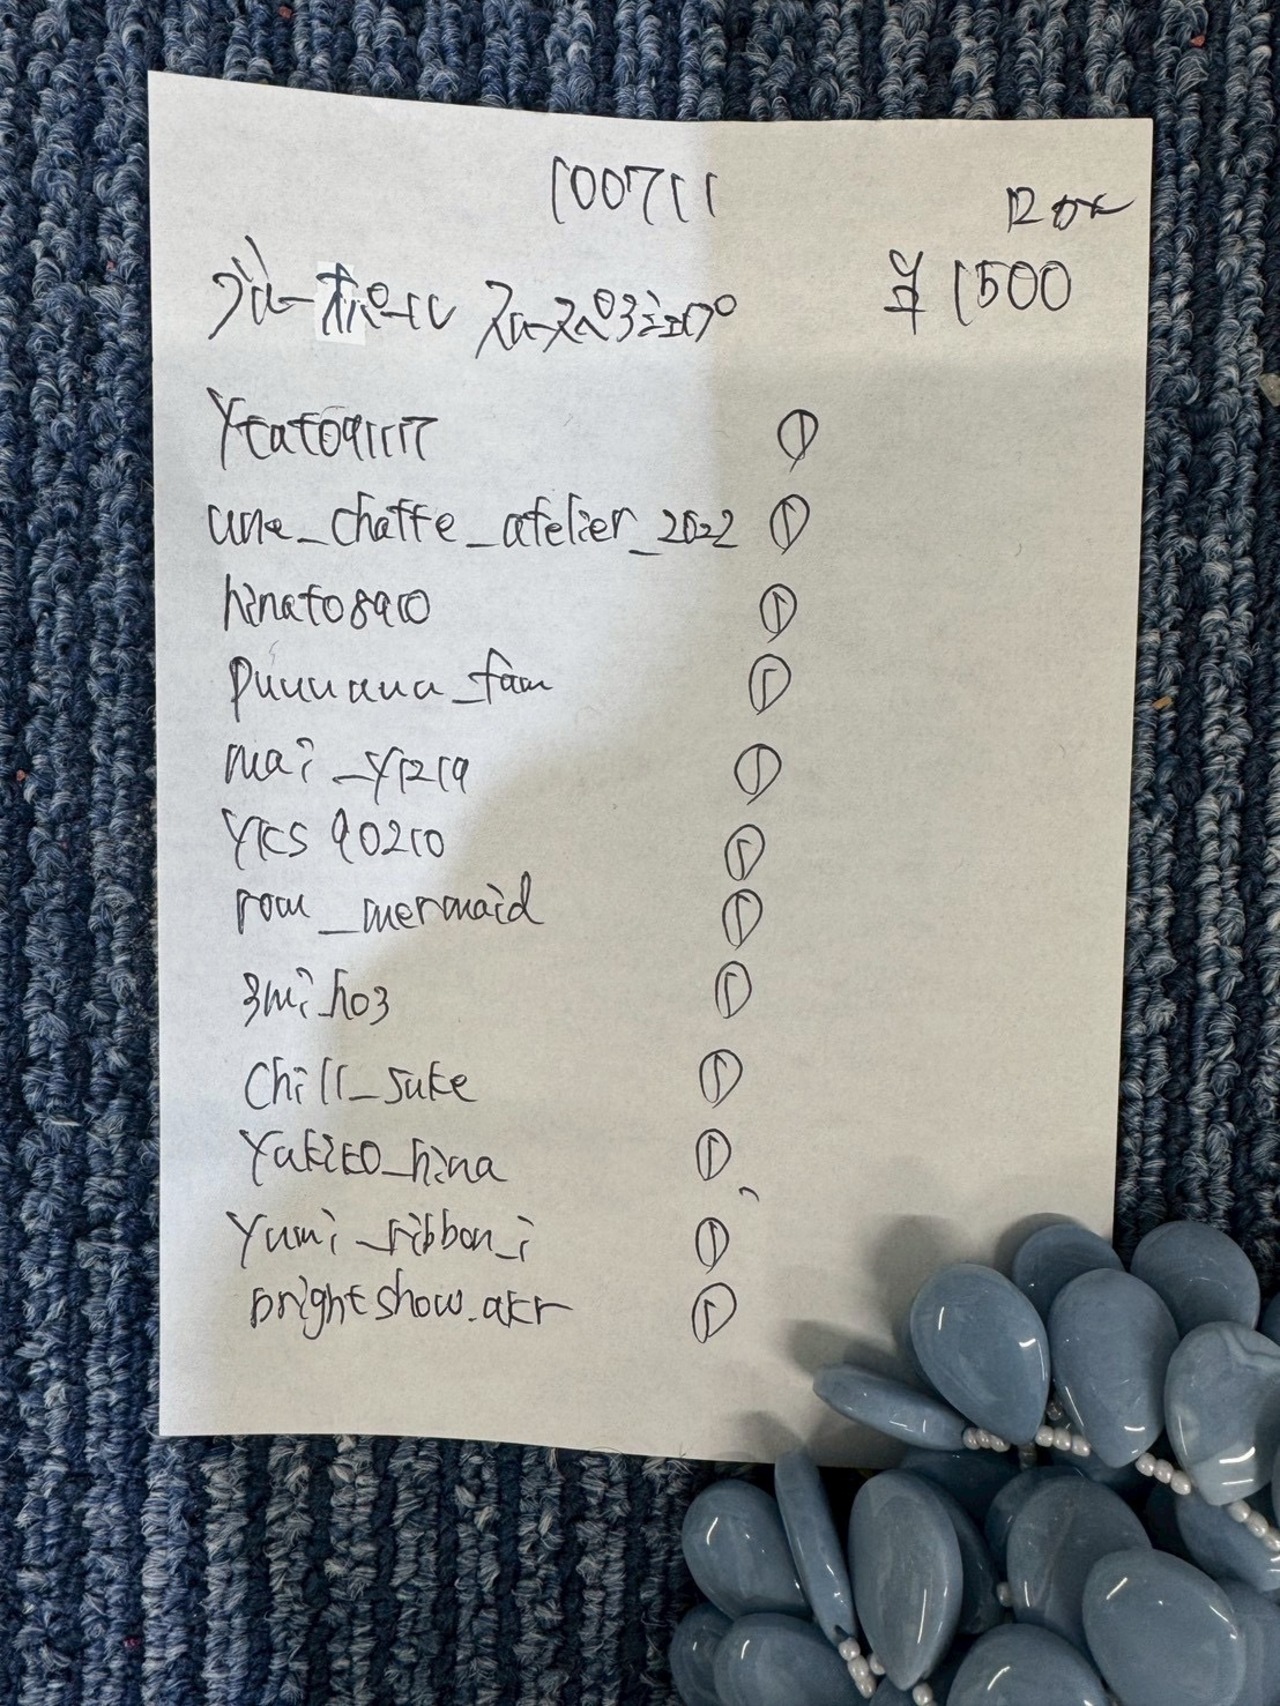 100711
12点
ブルーオパール スムースペアシェイプ ¥1500
ytat091117 ①
une_chatte_atelier_2022 ①
hinato8910 ①
puuuauua_fam ①
mai_y1219 ①
YKS90210 ①
rom_mermaid ①
3mi_ho3 ①
chill_suke ①
yakiko_hina ①
yumi_ribbon_i ①
brightshow.akr ①